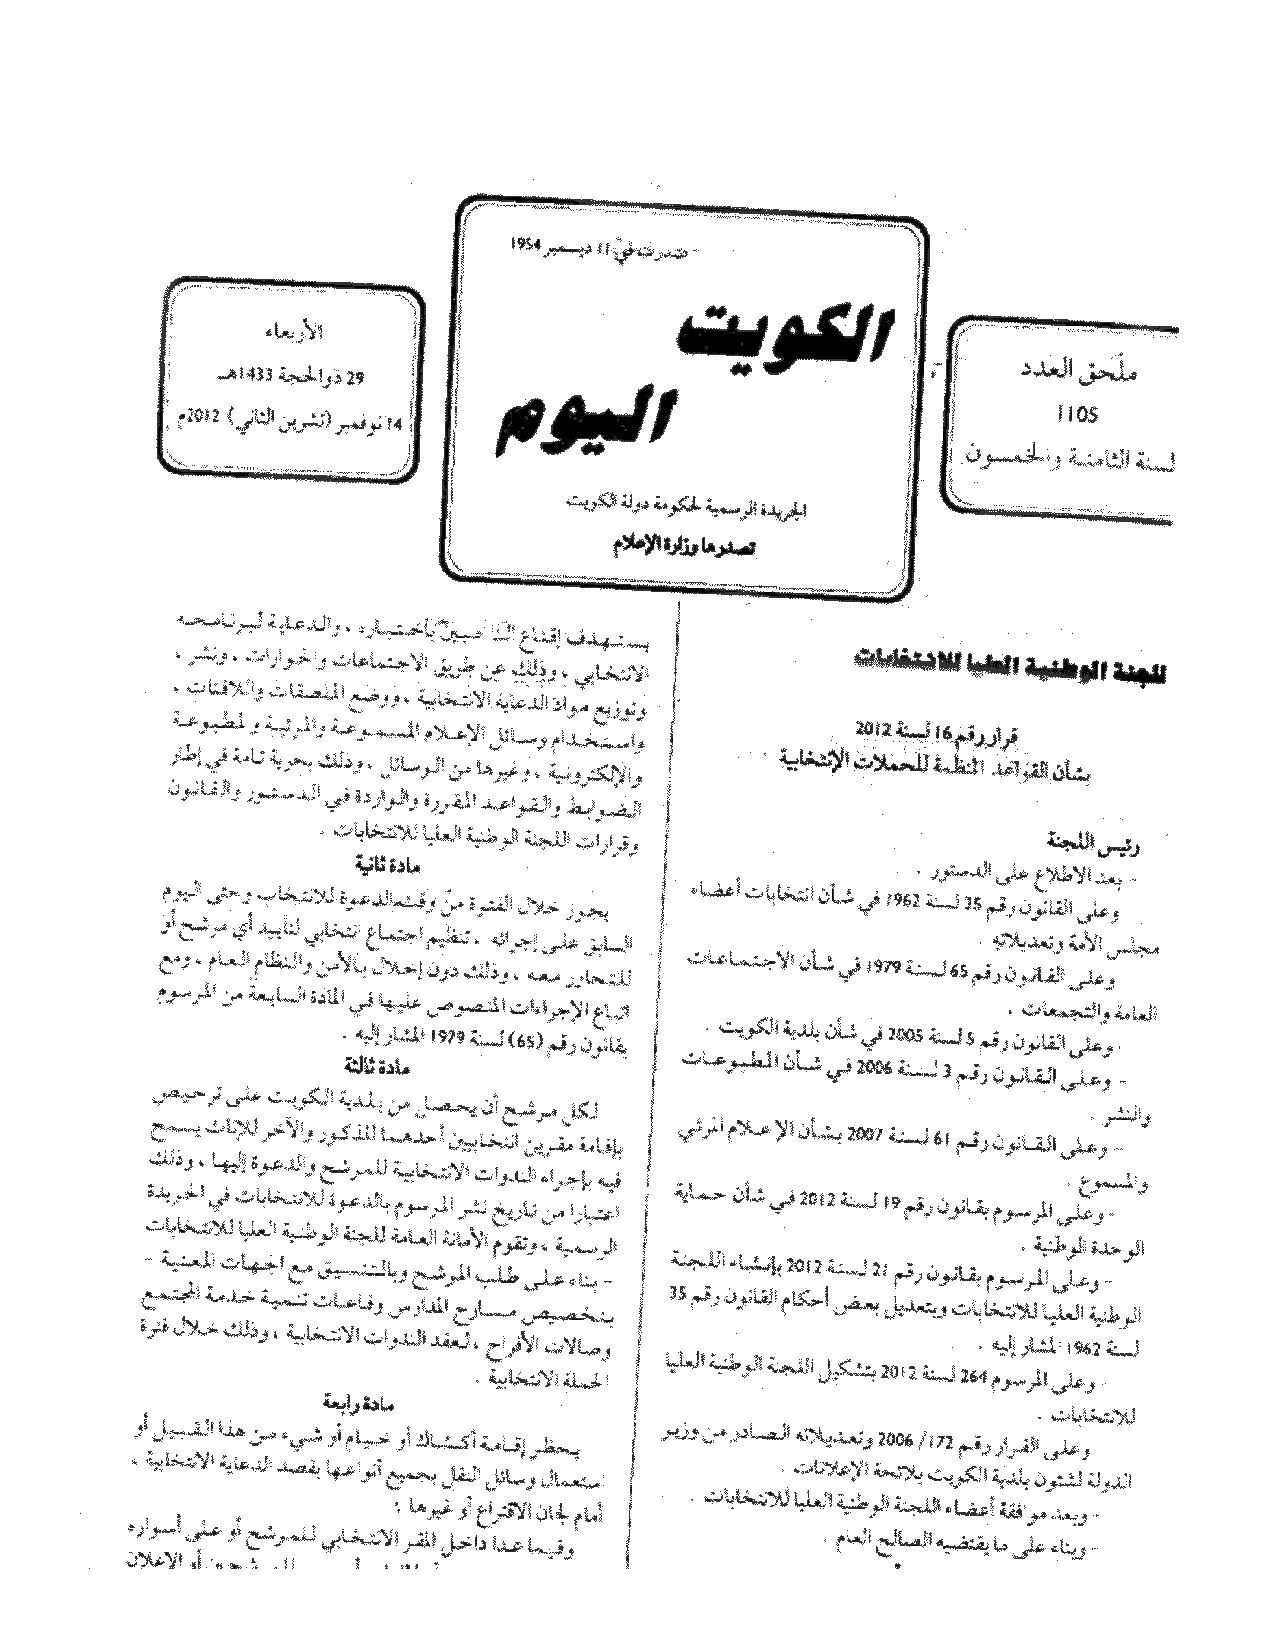 صدرت في 11 ديسمبر 1954
الكويت
اليوم
الجريدة الرسمية لحكومة دولة الكويت
تصدرها وزارة الإعلام
ملحق العدد
1105
لسنة الثامنة والخمسون
الأربعاء
29 ذو الحجة 1433هـ
14 نوفمبر (تشرين الثاني) 2012م
للجنة الوطنية العليا للانتخابات
قرار رقم 16 لسنة 2012
بشأن القواعد المنظمة للحملات الإنتخابية
رئيس اللجنة
- بعد الاطلاع على الدستور .
وعلى القانون رقم 35 لسنة 1962 في شأن انتخابات أعضاء
مجلس الأمة وتعديلاته .
وعلى القانون رقم 65 لسنة 1979 في شأن الاجتماعات
العامة والتجمعات .
- وعلى القانون رقم 5 لسنة 2005 في شأن بلدية الكويت .
- وعلى القانون رقم 3 لسنة 2006 في شأن المطبوعات
والنشر .
- وعلى القانون رقم 61 لسنة 2007 بشأن الإعلام المرئي
والمسموع .
- وعلى المرسوم بقانون رقم 19 لسنة 2012 في شأن حماية
الوحدة الوطنية .
- وعلى المرسوم بقانون رقم 21 لسنة 2012 بإنشاء اللجنة
الوطنية العليا للانتخابات وبتعديل بعض أحكام القانون رقم 35
لسنة 1962 المشار إليه .
- وعلى المرسوم 264 لسنة 2012 بتشكيل اللجنة الوطنية العليا
للانتخابات .
وعلى القرار رقم 172/ 2006 وتعديلاته الصادر من وزير
الدولة لشئون بلدية الكويت بلائحة الإعلانات .
- وبعد موافقة أعضاء اللجنة الوطنية العليا للانتخابات .
- وبناء على ما يقتضيه الصالح العام .
يستهدف إقناع الناخبين باختياره ، والدعاية لبرنامجه
الانتخابي ، وذلك عن طريق الاجتماعات والحوارات ، ونشر ،
وتوزيع مواد الدعاية الانتخابية ، ووضع الملصقات واللافتات ،
واستخدام وسائل الإعلام المسموعة والمرئية والمطبوعة
والإلكترونية ، وغيرها من الوسائل ، وذلك بحرية تامة في إطار
الضوابط والقواعد المقررة والواردة في الدستور والقانون
وقرارات اللجنة الوطنية العليا للانتخابات .
مادة ثانية
يجوز خلال الفترة من وقت الدعوة للانتخاب وحتى اليوم
السابق على إجرائه ، تنظيم اجتماع انتخابي لتأييد أي مرشح أو
للتحاور معه ، وذلك دون إخلال بالأمن والنظام العام ، ومع
اتباع الإجراءات المنصوص عليها في المادة السابعة من المرسوم
بقانون رقم (65) لسنة 1979 المشار إليه .
مادة ثالثة
لكل مرشح أن يحصل من بلدية الكويت على ترخيص
بإقامة مقرين انتخابيين أحدهما للذكور والآخر للإناث يسمح
فيه بإجراء الندوات الانتخابية للمرشح والدعوة إليها ، وذلك
اعتبارا من تاريخ نشر المرسوم بالدعوة للانتخابات في الجريدة
الرسمية ، وتقوم الأمانة العامة للجنة الوطنية العليا للانتخابات
- بناء على طلب المرشح وبالتنسيق مع الجهات المعنية -
بتخصيص مسارح المدارس وقاعات تنمية خدمة المجتمع
وصالات الأفراح ، لعقد الندوات الانتخابية ، وذلك خلال فترة
الحملة الانتخابية .
مادة رابعة
يحظر إقامة أكشاك أو خيام أو شيء من هذا القبيل أو
استعمال وسائل النقل بجميع أنواعها بقصد الدعاية الانتخابية ،
أمام لجان الاقتراع أو غيرها :
وفيما عدا داخل المقر الانتخابي للمرشح أو على أسواره
للمرشحين أو الإعلان